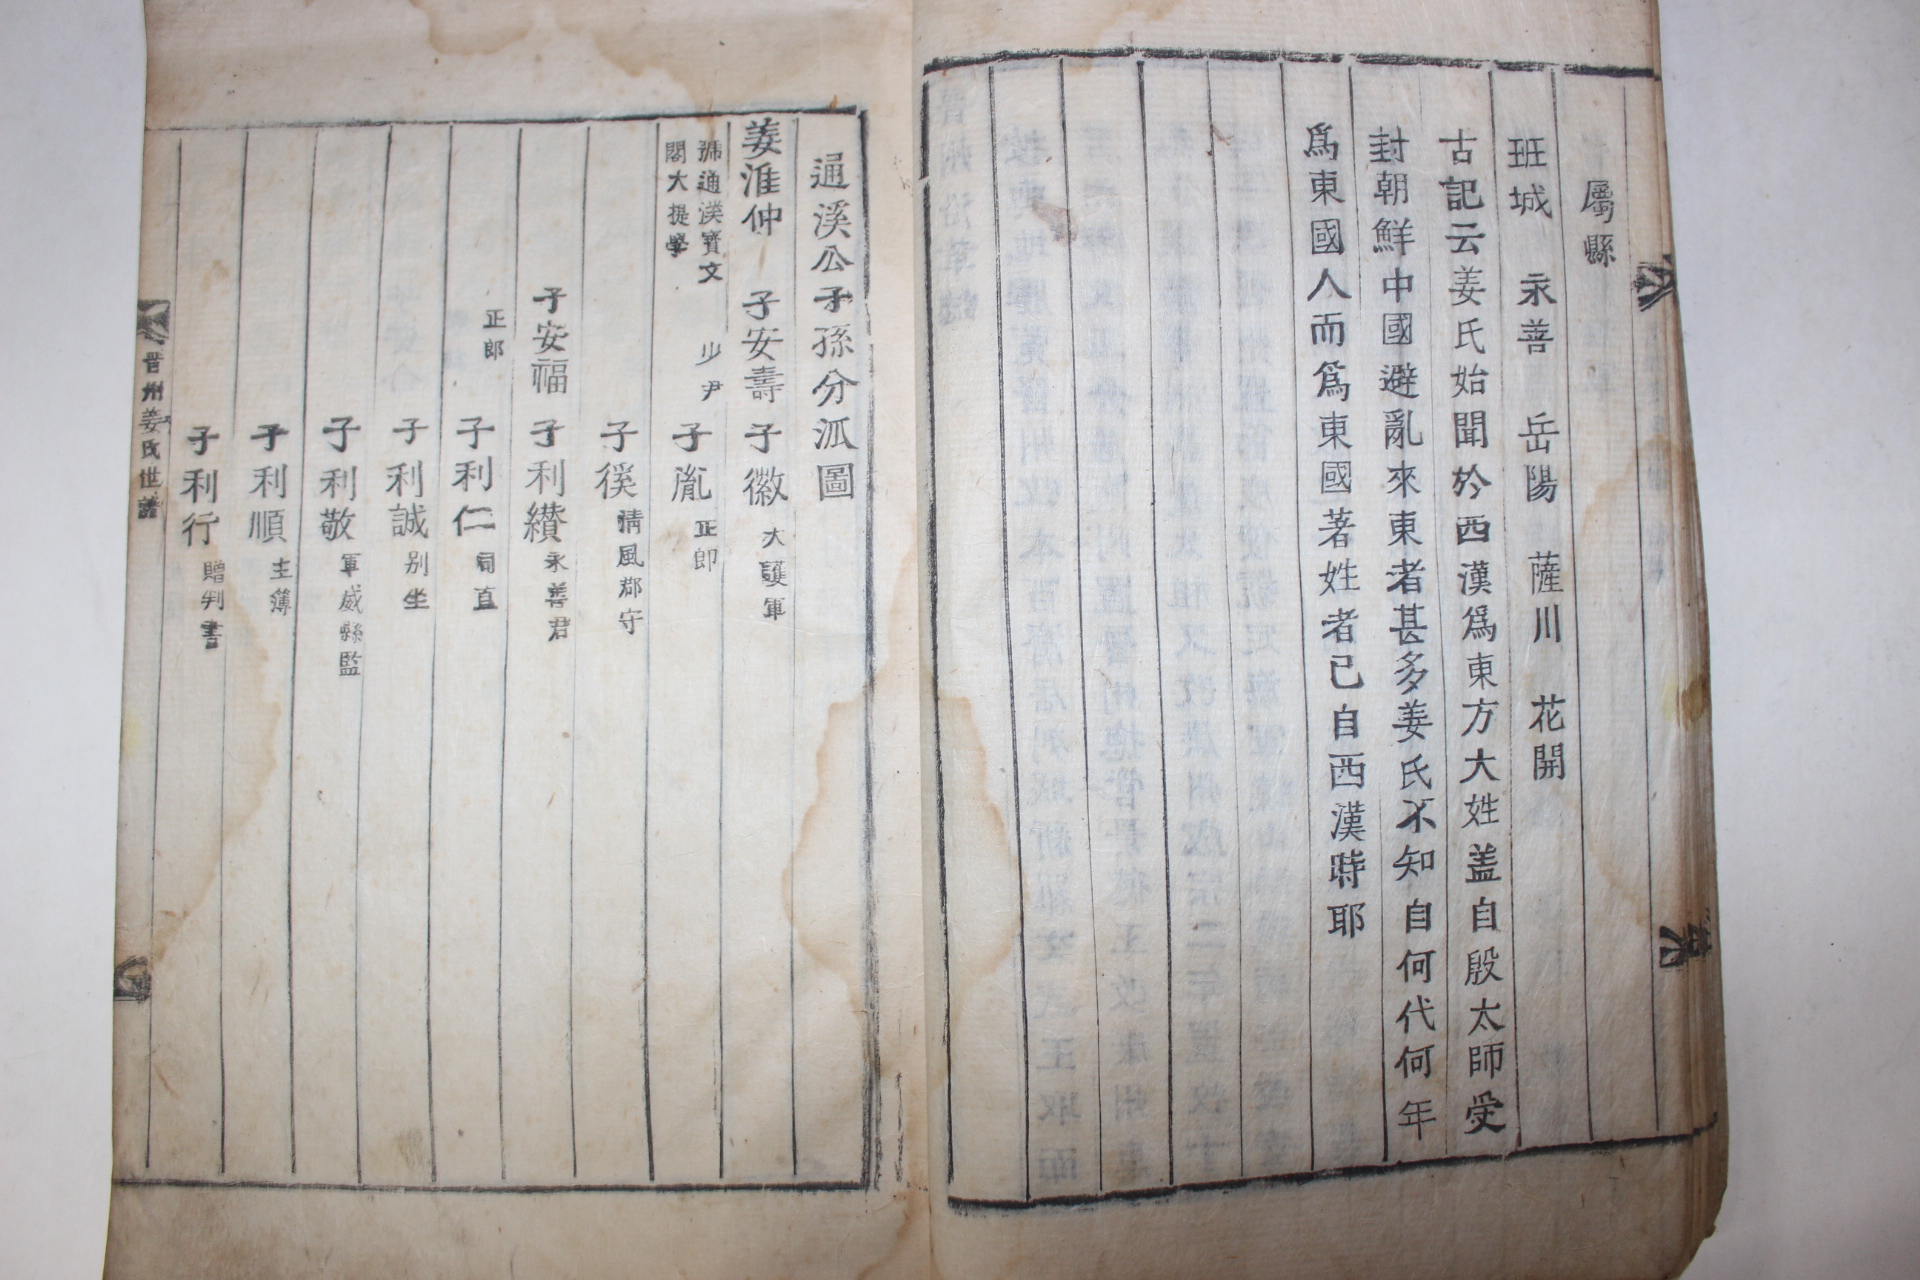 屬縣
班城 永善 岳陽 薩川 花開
古記云姜氏始聞於西漢爲東方大姓盖自殷太師受
封朝鮮中國避亂來東者甚多姜氏不知自何代何年
爲東國人而爲東國著姓者已自西漢時耶
通溪公子孫分派圖
姜淮仲 子安壽 子徽 大護軍
號通溪寶文 少尹 子胤 正郎
閣大提學
子徯 淸風郡守
子安福 子利纉 永善君
正郎 子利仁 司直
子利誠 别坐
子利敬 軍威縣監
子利順 主簿
子利行 贈判書
晋州姜氏世譜